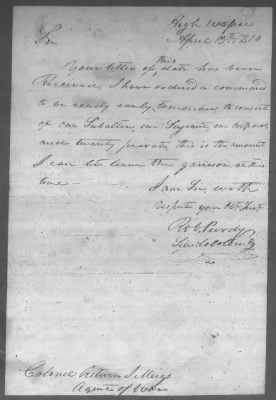 High wassee
April 13th 1810
Sir
Your letter of this date has been
Received, I have ordered a command
to be ready early tomorrow, to consist
of one Subaltern one Serjeant, one corporal
and twenty privates, this is the amount
I can let leave the garrison at this
time —
I am Sir, with
respect your Obt. Servt.
Rob Purdy
Lieut Colonel
Colonel Return J Meigs
Agent of War